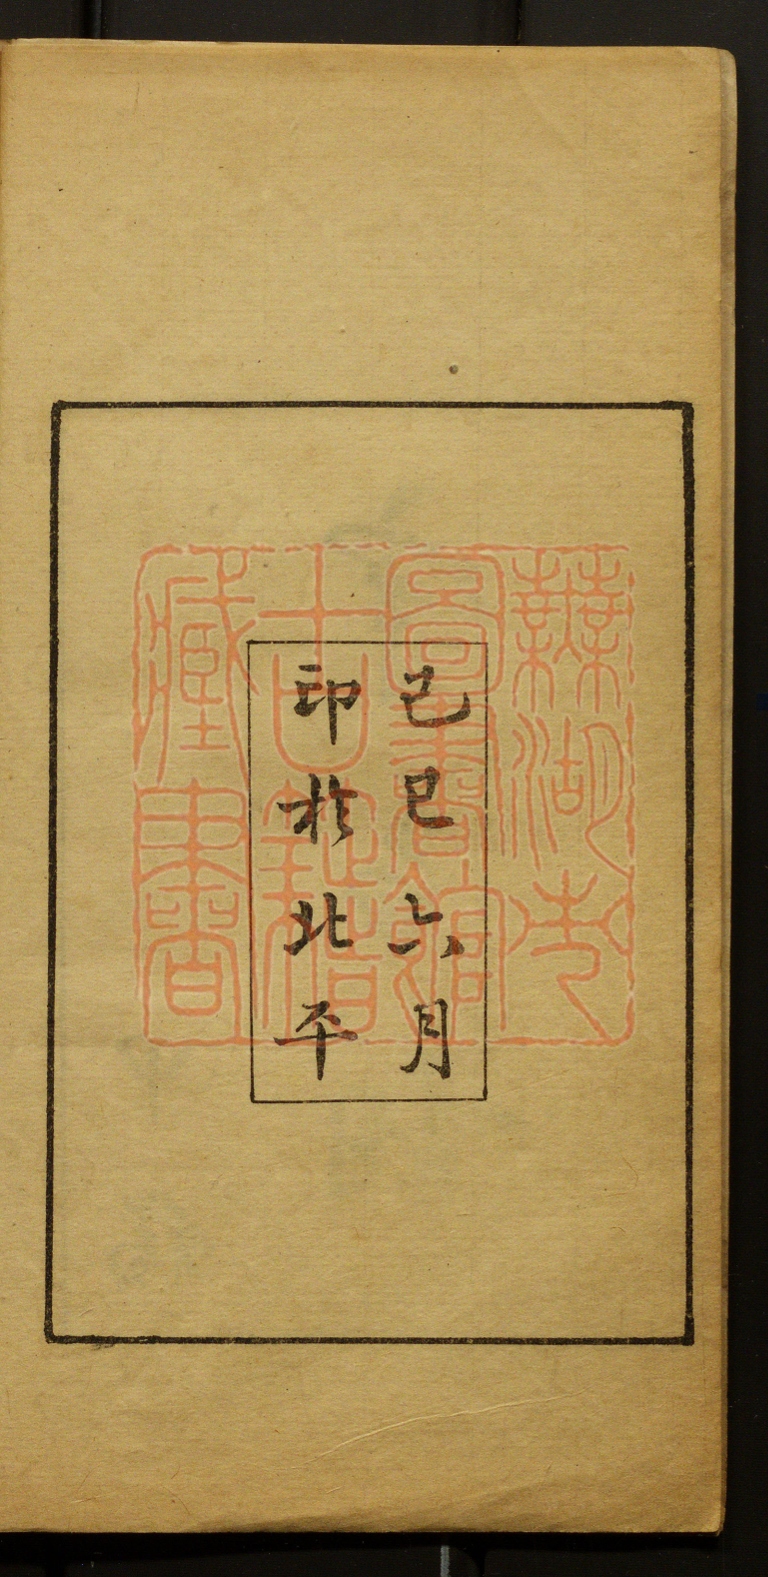 己巳六月
印於北平
蕪湖市
圖書館
古籍
藏書